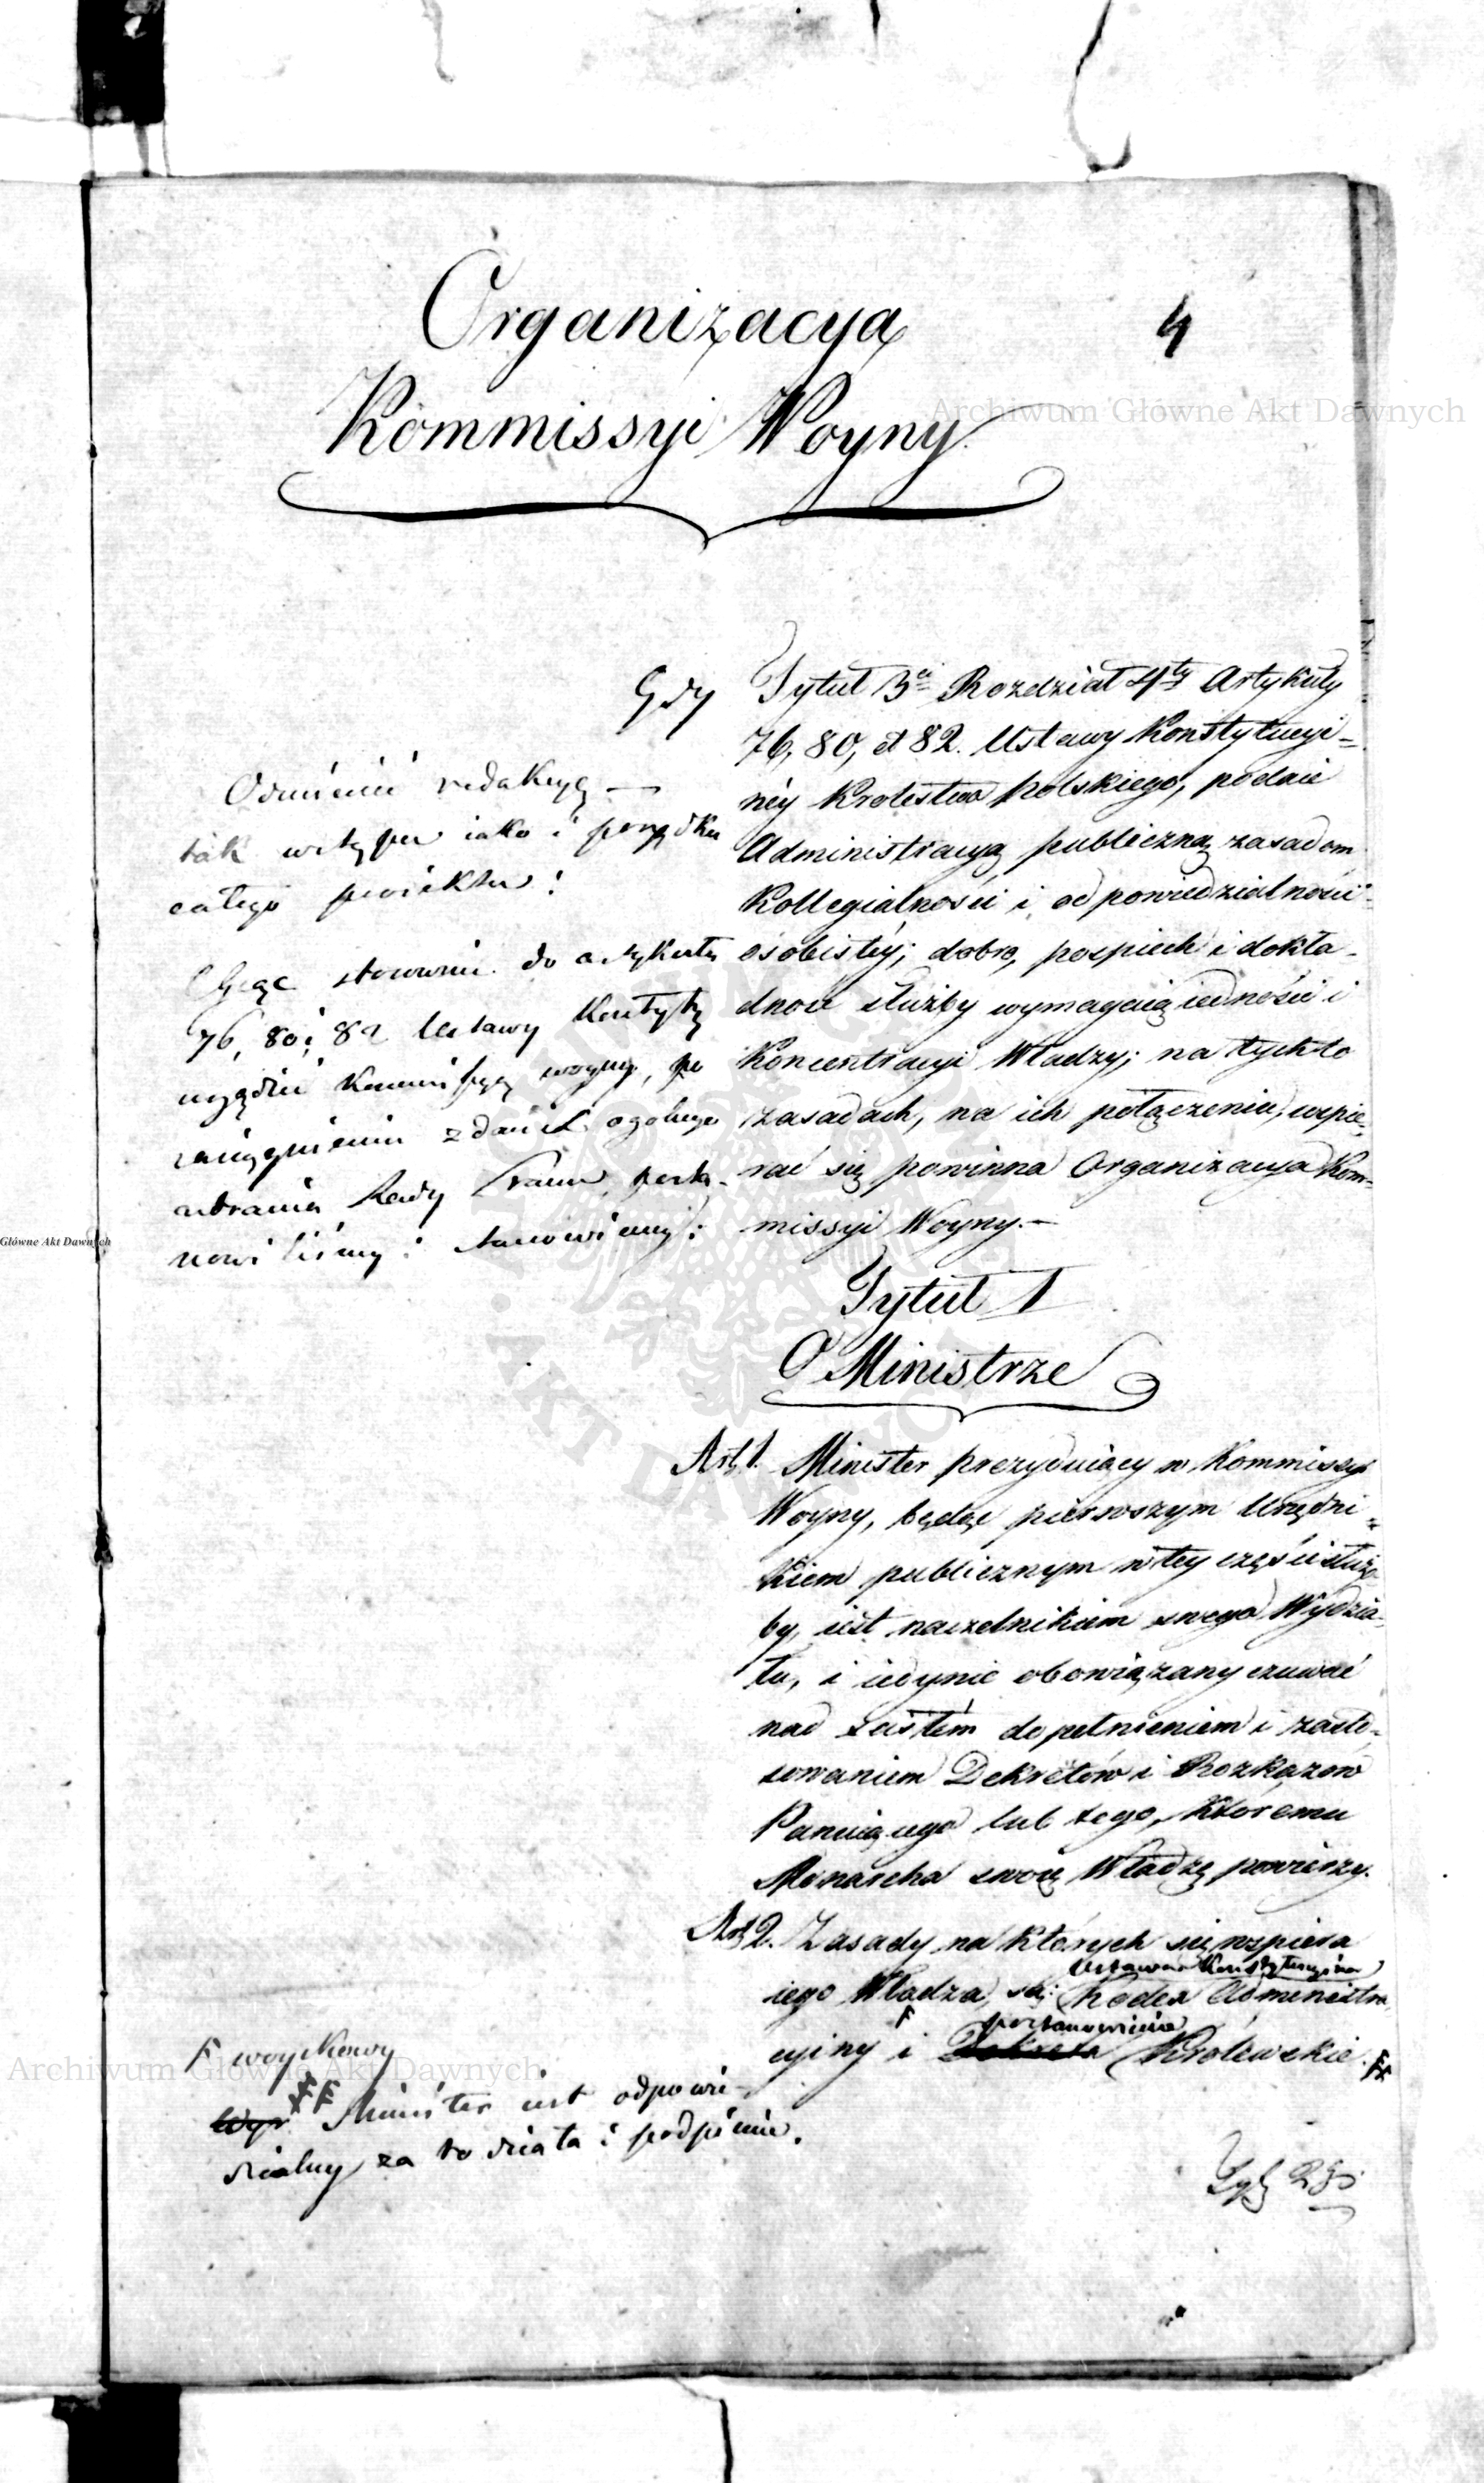 Organizacya
4
Kommissyi Woyny.
Gdy Tytuł 3ci Rozdział 4ty Artykuły
76, 80, et 82. Ustawy Konstytucyi=
néy Krolestwa Polskiego, poddaie
Administracyą publiczną zasadom
Kollegialności i odpowiedzialności
osobistéy; dobro, pospiech i dokła-
dność służby wymagaią iedności i
Koncentracyi Władzy; na tychto
zasadach, na ich połączeniu, wspie=
rać się powinna Organizacya Kom=
missyi Woyny.-
Odmienić redakcyę —
tak wstępu iako i porządku
całego proiektu:
Chcąc stosownie do artykułu
76, 80 i 82 Ustawy Konstyty
urządzić Kommissyę woyny, po
zaciągnieniu zdania ogolnego
zebrania Rady Stanu, posta-
nowiliśmy i stanowiemy:
Tytuł I
O Ministrze
Art 1. Minister prezyduiący w Kommissyi
Woyny, będąc pierwszym Urzędni=
kiem publicznym w tey części służ
by, iest naczelnikiem swego Wydzia=
łu, i iedynie obowiązany czuwać
nad dopełnieniem i zasto=
sowaniem Dekretów i Rozkazow
Panuiącego lub tego, któremu
Monarcha swoią Władzę powierzy.
Art 2. Zasady na których się wspiera
Ustawa Konstytucyina
iego Władza, są: Kodex Administra
F postanowienia
cyiny i Dekreta Królewskie. FF
F woyskowy
Wyr FF Minister iest odpowie-
dzialny za to działa i podpisuie.